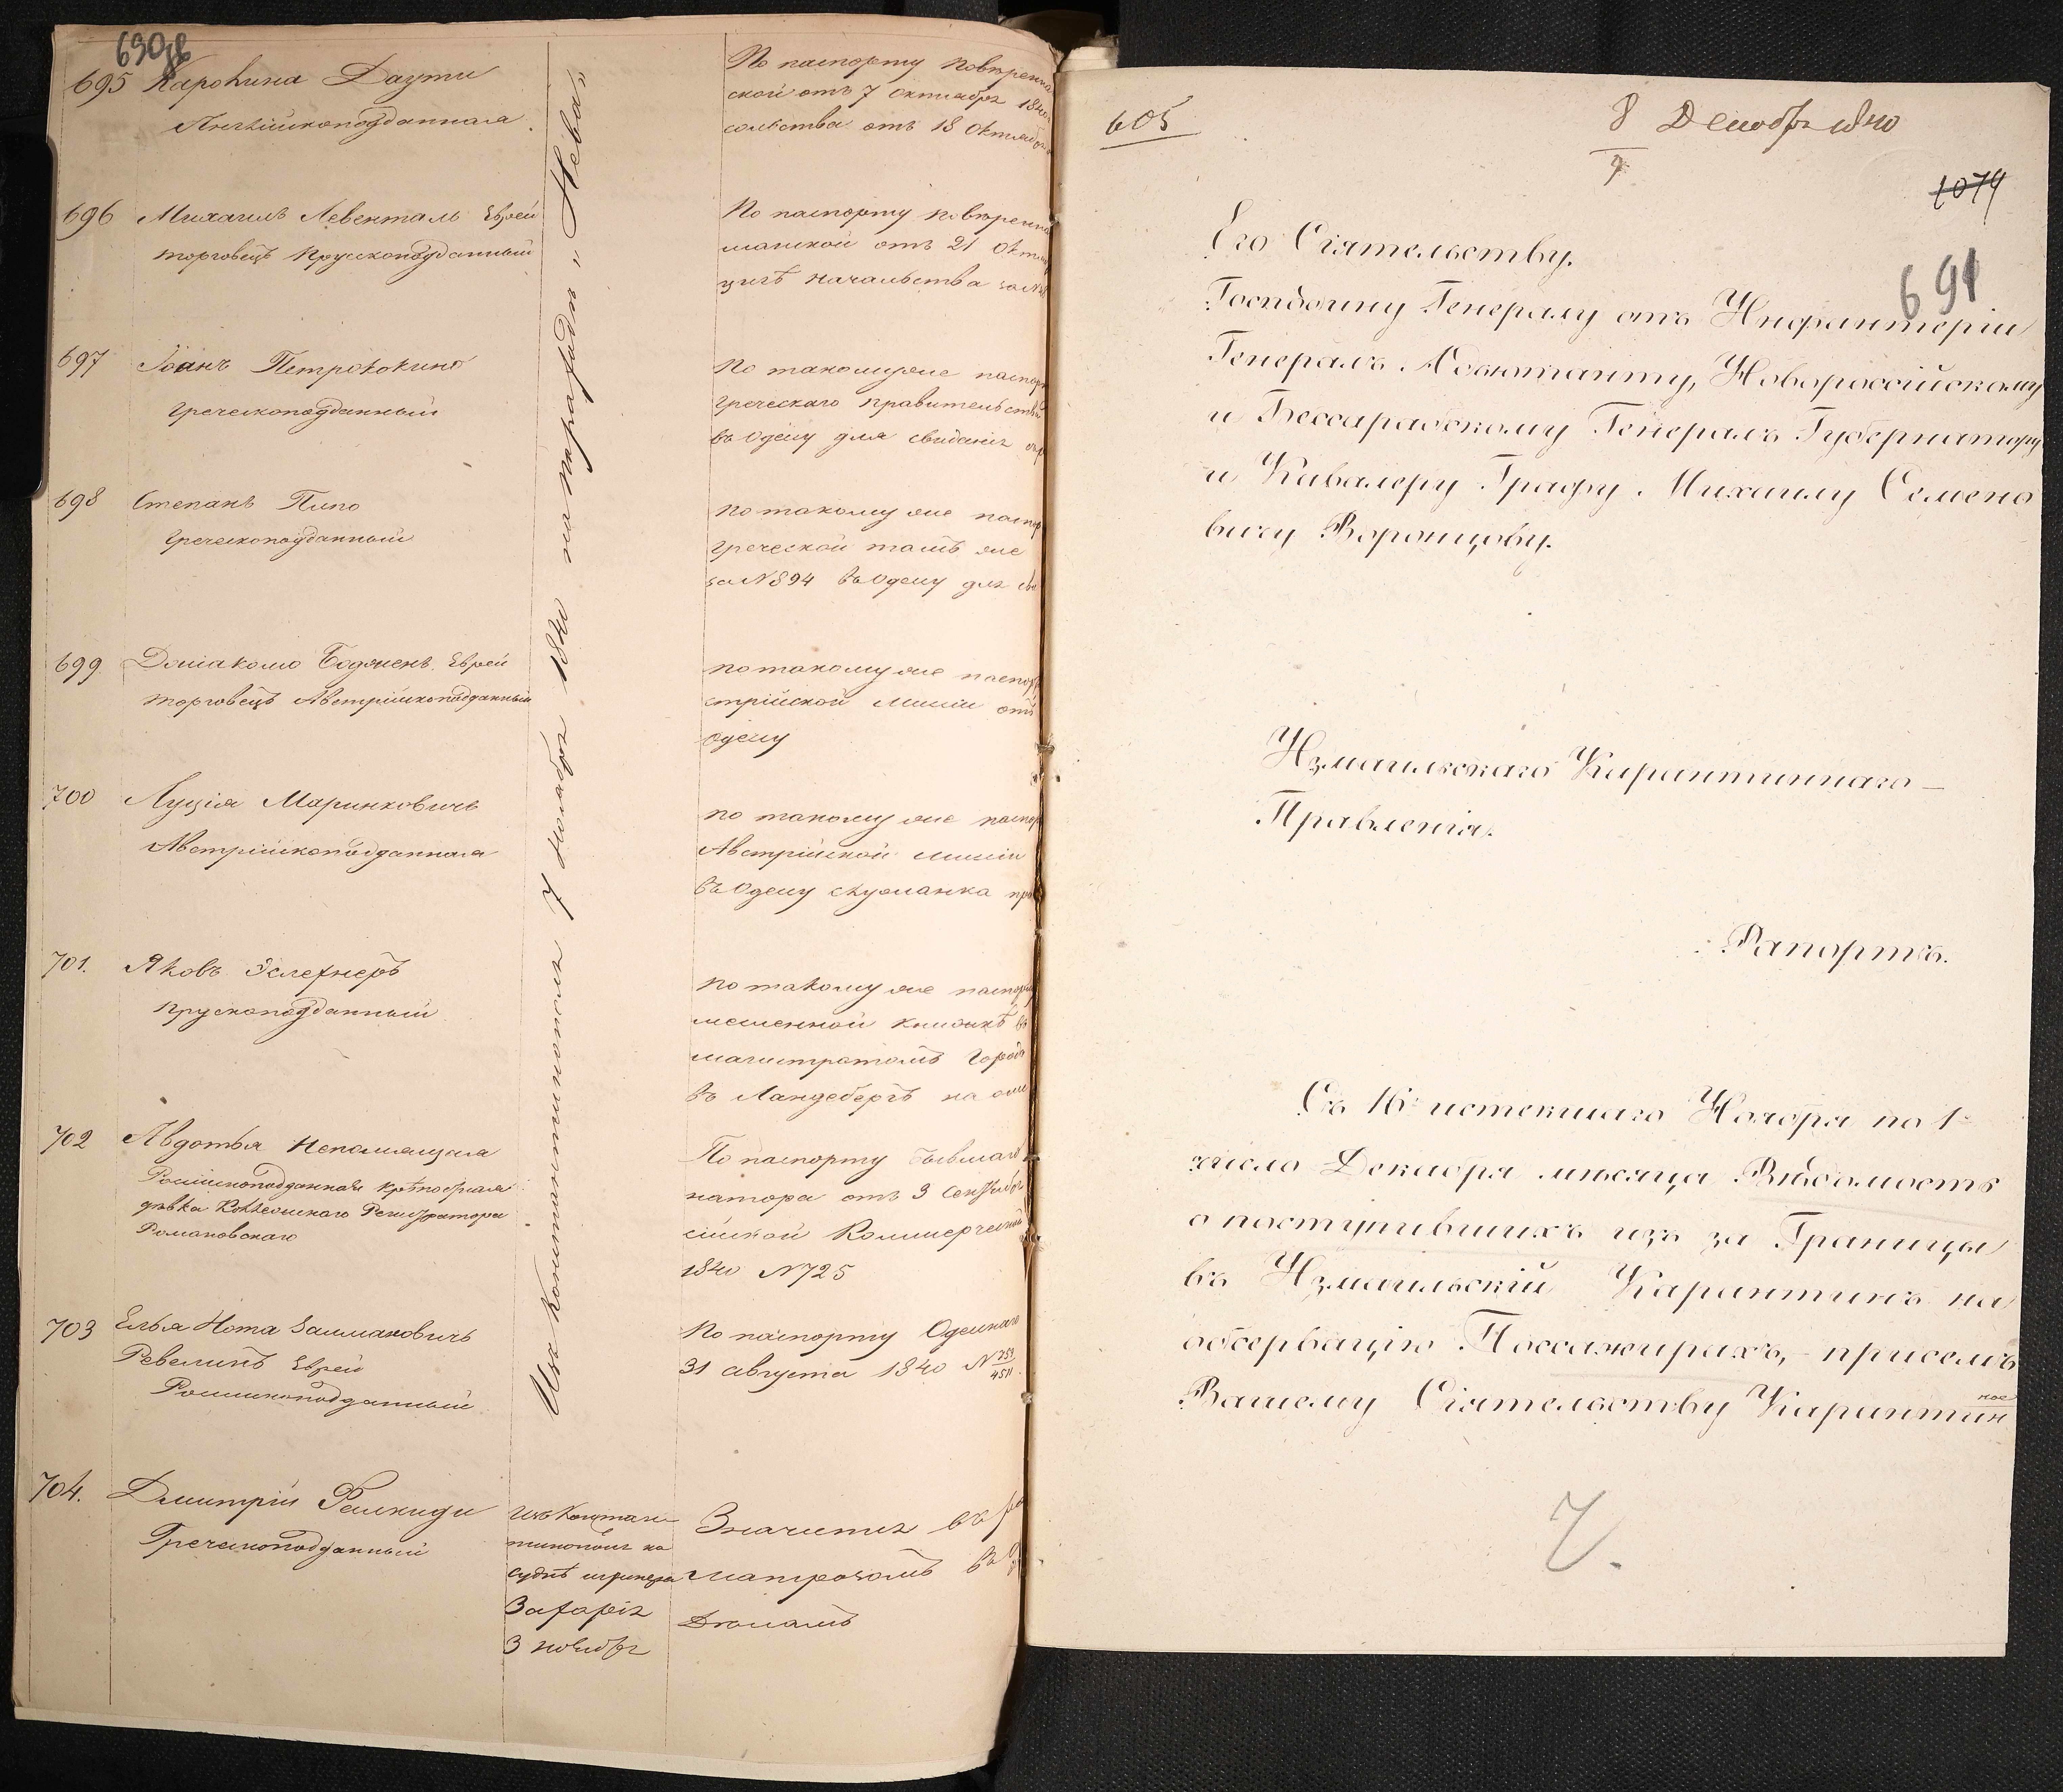 690об
695 Каролина Даути
Англійскоподданная.
По паспорту повѣренна
ской отъ 7 Октября 1840
сольства отъ 18 Октября
696 Михаилъ Левенталь Еврей
торговецъ Прусскоподданный
По паспорту повѣренна
манской отъ 21 Октяб
цигъ начальства за №
697 Іоанъ Петрококино
Греческоподданный
По такому же паспор
Греческаго правительств
въ Одессу для свиданія съ р
698 Степанъ Пипо
Греческоподданный
по такому же паспор
греческой тамъ же
за № 894 въ Одессу для сви
699. Еврей
торговецъ Австрійскоподданный
по такому же паспор
стрійской миссіи отъ
Одессу
700 Луція Маринковичъ
Австрійскоподданная
по такому же паспор
Австрійской миссіи
въ Одессу служанка при
701. Яковъ Эслехнеръ
Прускоподданный
по такому же паспор
месленной книжкѣ въ
магистратомъ Города
въ Ландсбергъ на
702 Авдотья Непомящая
Россійскоподданная крѣпостная
дѣвка Коллежскаго Регистратора
Романовскаго
По паспорту бывшаго
натора отъ 3 Сентября
сійской Коммерческой
1840 № 725
703 Елья Нота Залмановичъ
Ревелинъ Еврей
Россійскоподданный
По паспорту Одесскаго
31 августа 1840 № 753/4511.
Изъ Константинополя 7 Ноября 1840 на пароходѣ „Нева“
704. Дмитрій
Греческоподданный
изъ Констан
тинополя на
суднѣ шкипера
Захарія
3 ноября
Значится въ ро
матрозомъ въ
605
8 Декабря 1840
9
1079
691
Его Сіятельству.
Господину Генералу отъ Инфантеріи
Генералъ Адъютанту, Новороссійскому
и Бессарабскому Генералъ Губернатору
и Кавалеру Графу Михаилу Семено
вичу Воронцову.
Измаильскаго Карантиннаго
Правленія.
Рапортъ.
Съ 16 истекшаго Ноября по 1
число Декабря мѣсяца Вѣдомость
о поступившихъ изъ за Границы
въ Измаильскій Карантинъ на
обсервацію Поссажирахъ, – при семъ
Вашему Сіятельству Карантин
ное